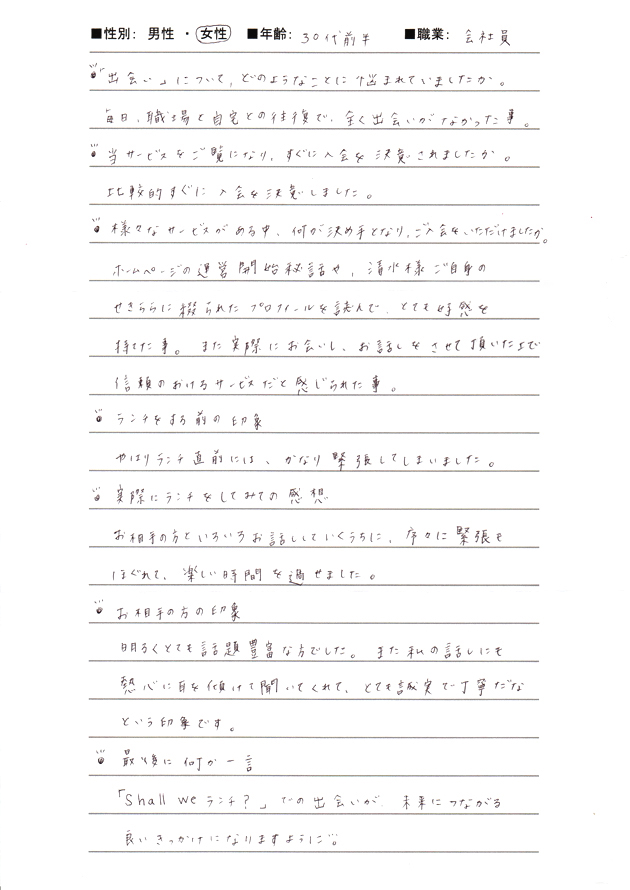 ■性別: 男性 ・ 女性 ■年齢: 30代前半 ■職業: 会社員
「出会い」について、どのようなことに悩まれていましたか。
毎日、職場と自宅との往復で、全く出会いがなかった事。
当サービスをご覧になり、すぐに入会を決意されましたか。
比較的すぐに入会を決意しました。
様々なサービスがある中、何が決め手となり、ご入会をいただけましたか。
ホームページの運営開始秘話や、清水様ご自身の
せきららに綴られたプロフィールを読んで、とても好感を
持てた事。また実際にお会いし、お話しをさせて頂いた上で
信頼のおけるサービスだと感じられた事。
ランチをする前の印象
やはりランチ直前には、かなり緊張してしまいました。
実際にランチをしてみての感想
お相手の方といろいろお話ししていくうちに、序々に緊張も
ほぐれて、楽しい時間を過せました。
お相手の方の印象
明るくとても話題豊富な方でした。また私の話しにも
熱心に耳を傾けて聞いてくれて、とても誠実で丁寧だな
という印象です。
最後に何か一言
「Shall we ランチ?」での出会いが、未来につながる
良いきっかけになりますように